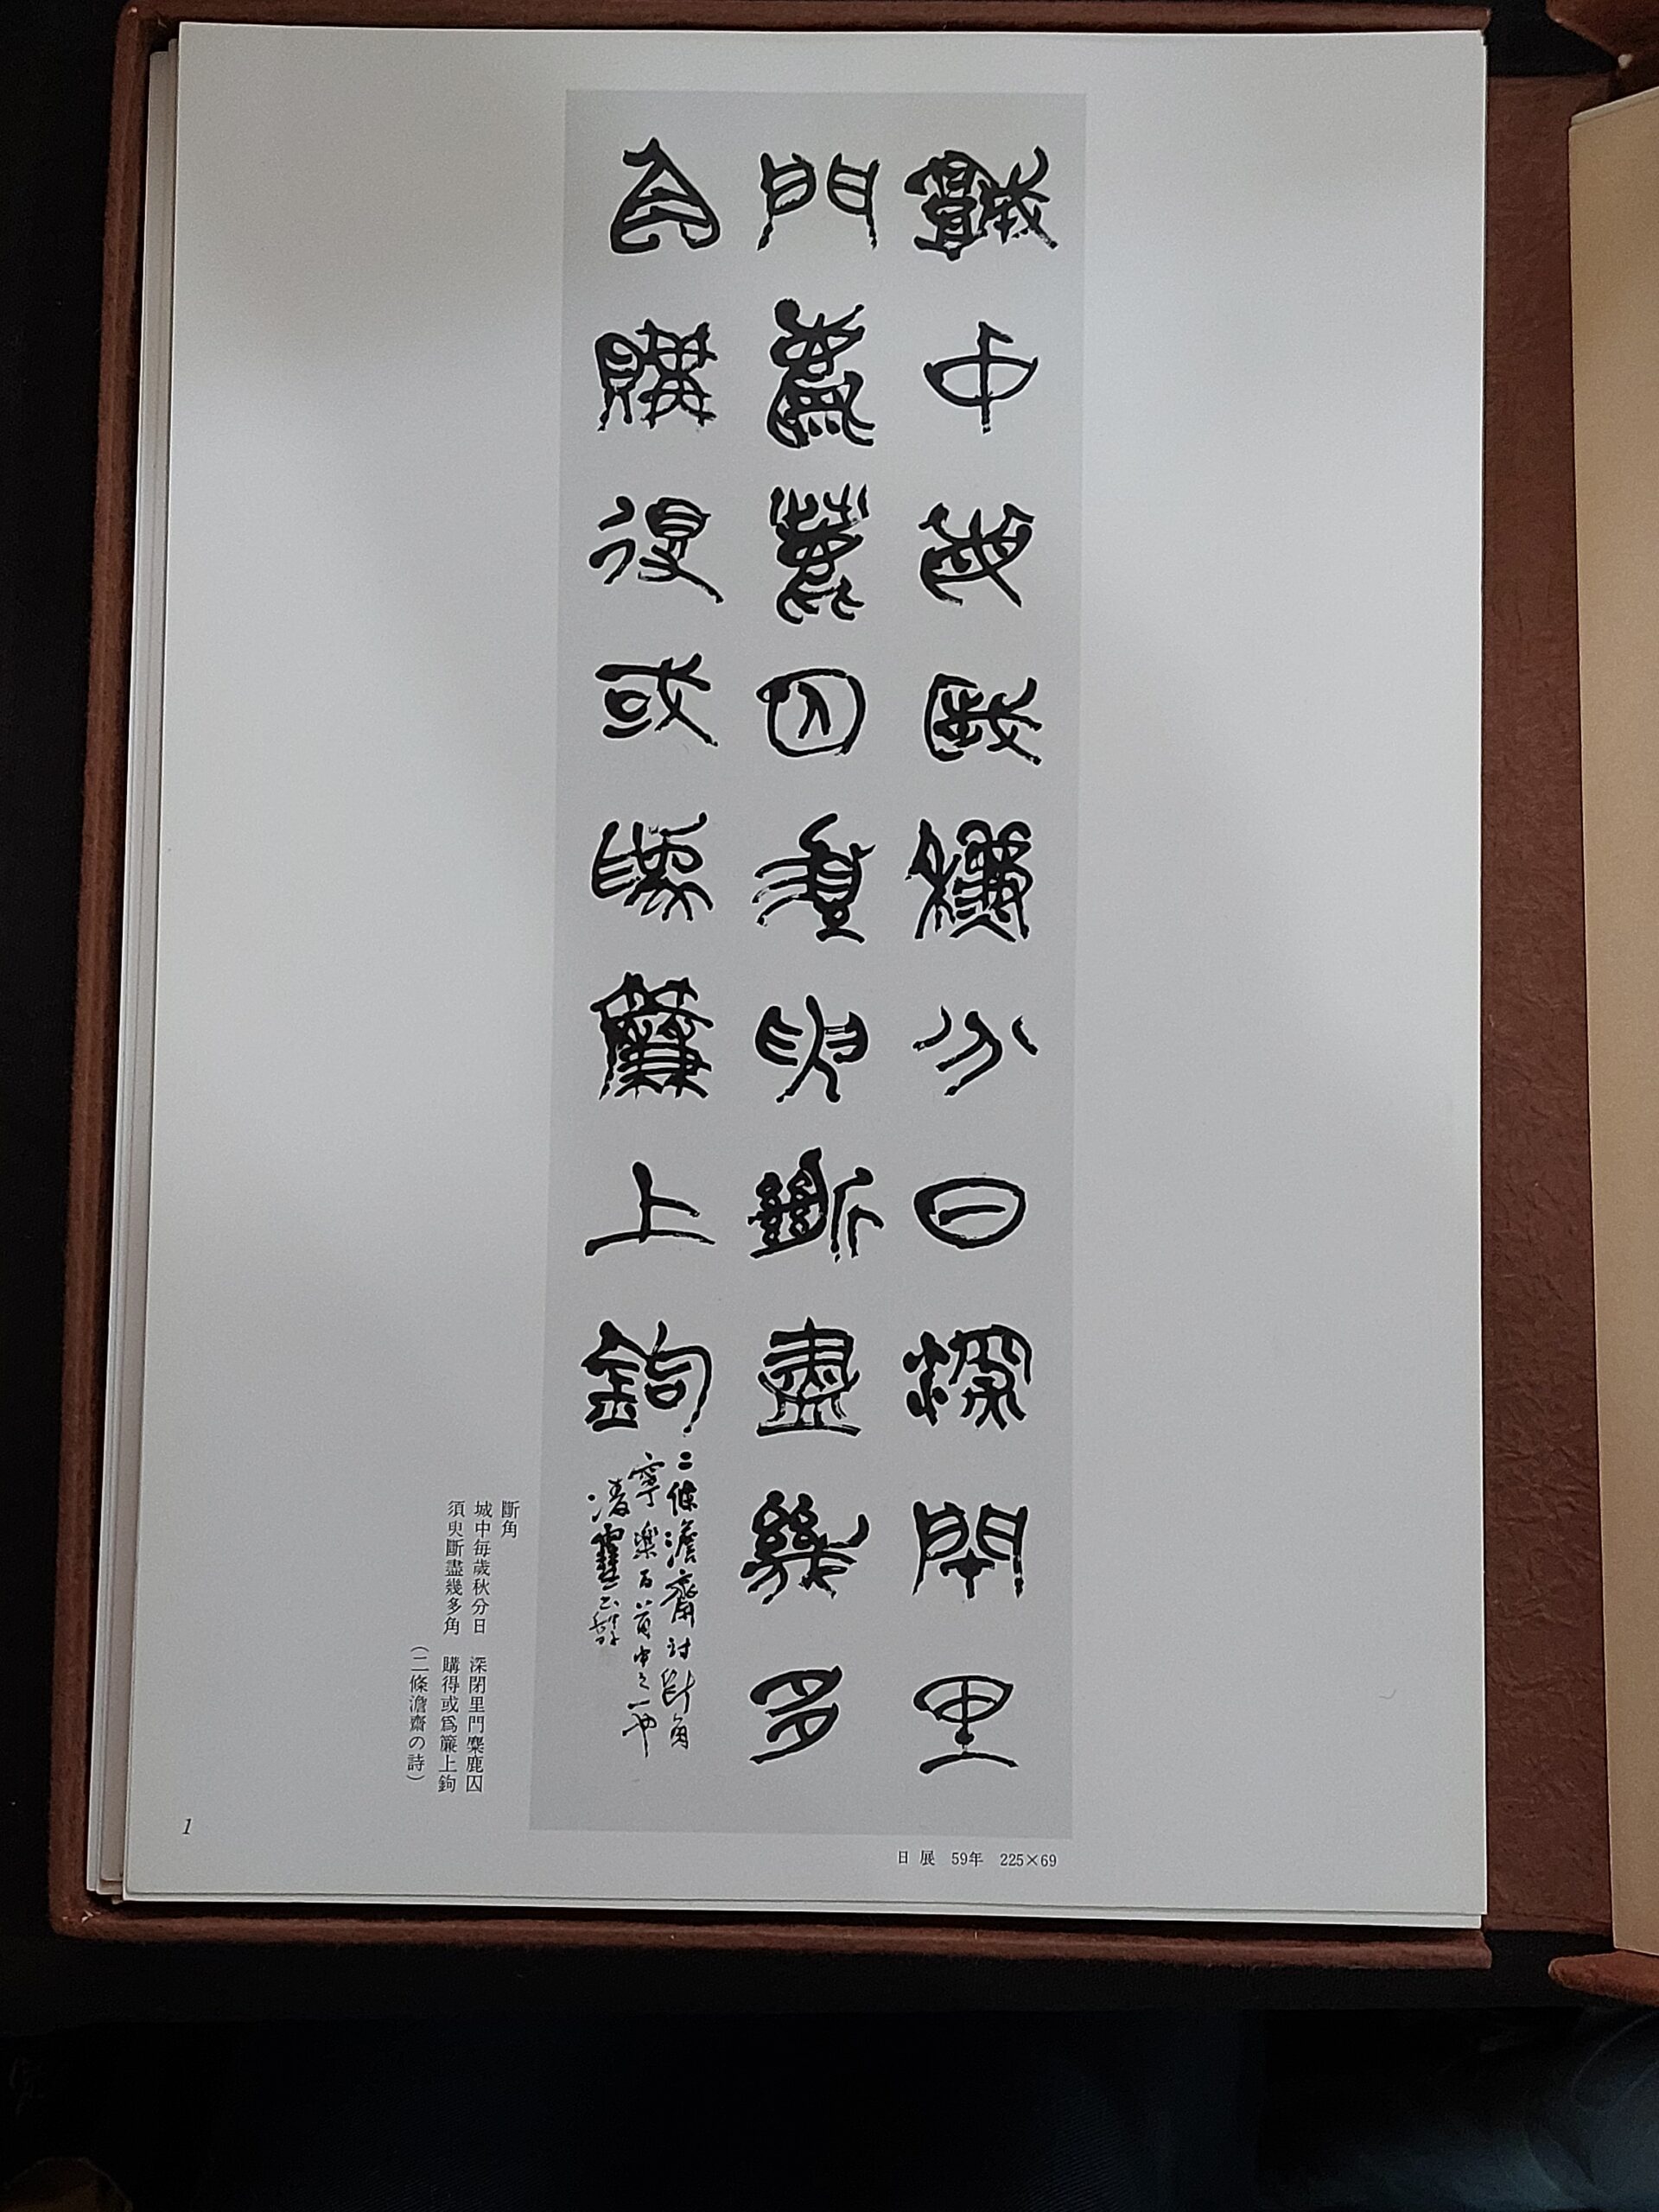 城中毎歳秋分日深閉里
門麋鹿囚須臾斷盡幾多
角購得或爲簾上鉤
二條澹齋詩斷角
寧楽百首中之一也
斷角
城中毎歳秋分日　深閉里門麋鹿囚
須臾斷盡幾多角　購得或爲簾上鉤
（二條澹齋の詩）
日展　59年　225×69
1